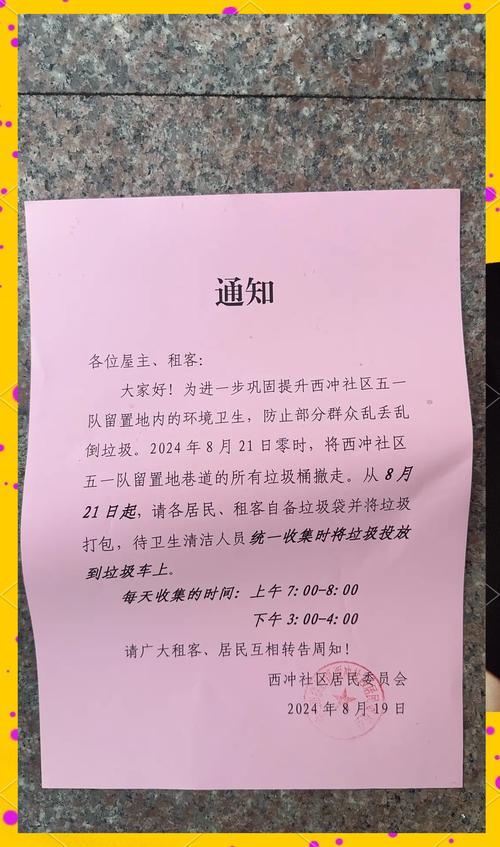 通知
各位屋主、租客:
大家好!为进一步巩固提升西冲社区五一
队留置地内的环境卫生,防止部分群众乱丢乱
倒垃圾。2024年8月21日零时,将西冲社区
五一队留置地巷道的所有垃圾桶撤走。从8月
21日起,请各居民、租客自备垃圾袋并将垃圾
打包,待卫生清洁人员统一收集时将垃圾投放
到垃圾车上。
每天收集的时间:上午7:00-8:00
下午3:00-4:00
请广大租客、居民互相转告周知!
西冲社区居民委员会
2024年8月19日